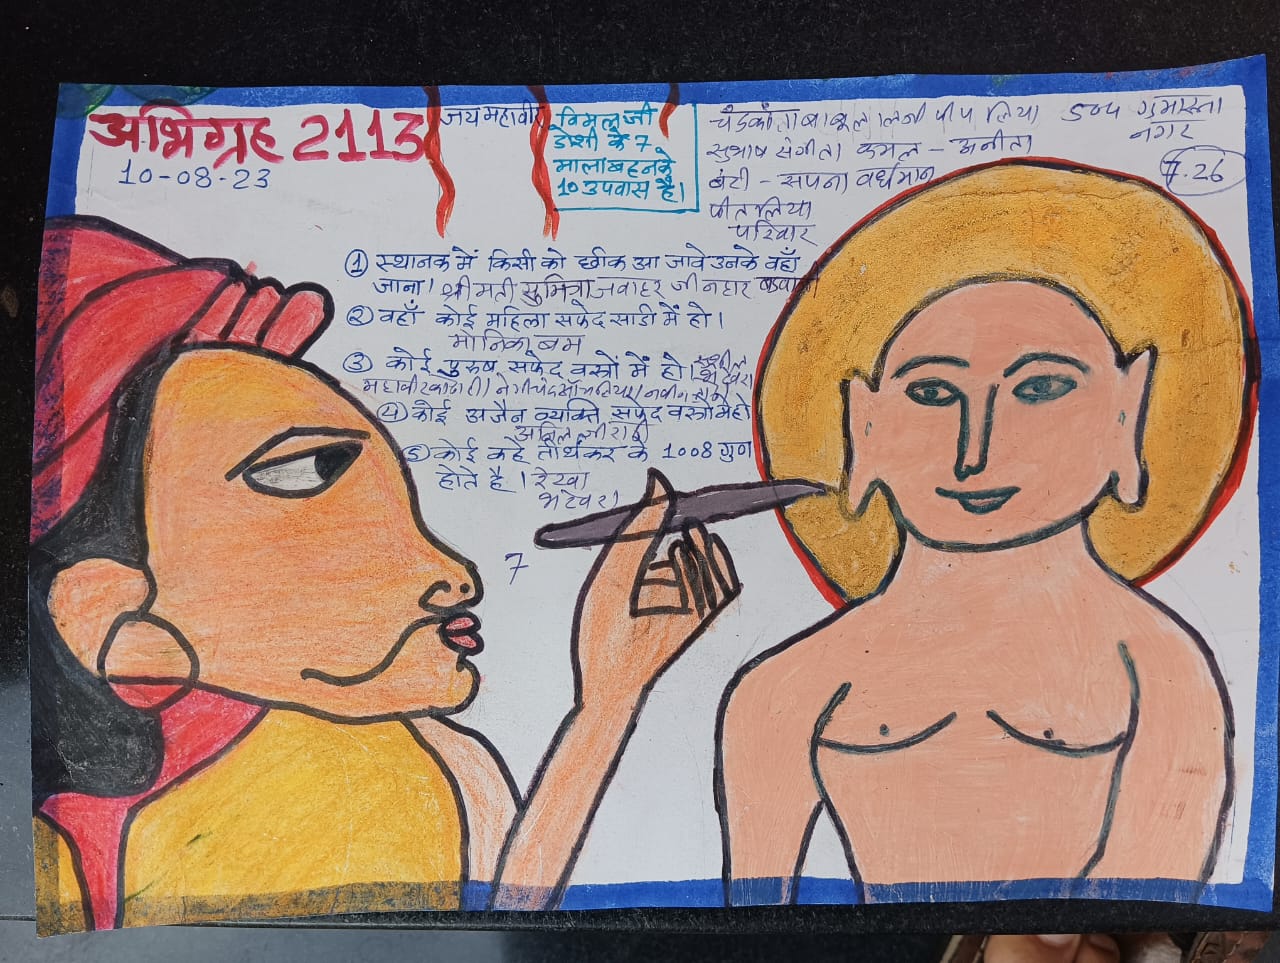 अभिग्रह 2113
10-08-23
जय महावीर
विमल जी
डोशी के 7
माला बहन के
10 उपवास है।
चंद्रकांता बाबूलालजी पीपलिया 504 गुमास्ता
नगर
सुभाष संगीता कमल - अनीता
7.26
बंटी - सपना वर्धमान
पीतलिया
परिवार
① स्थानक में किसी को छींक आ जावे उनके वहाँ
जाना। श्रीमती सुमित्रा जवाहर जी नहार
② वहाँ कोई महिला सफेद साडी में हो।
मोनिका बम
③ कोई पुरुष सफेद वस्त्रों में हो। सुशील
भटेवरा
महावीर
④ कोई अजैन व्यक्ति सफेद वस्त्रों में हो
अनिल जी
⑤ कोई कहे तीर्थंकर के 1008 गुण
होते है। रेखा
भटेवरा
7